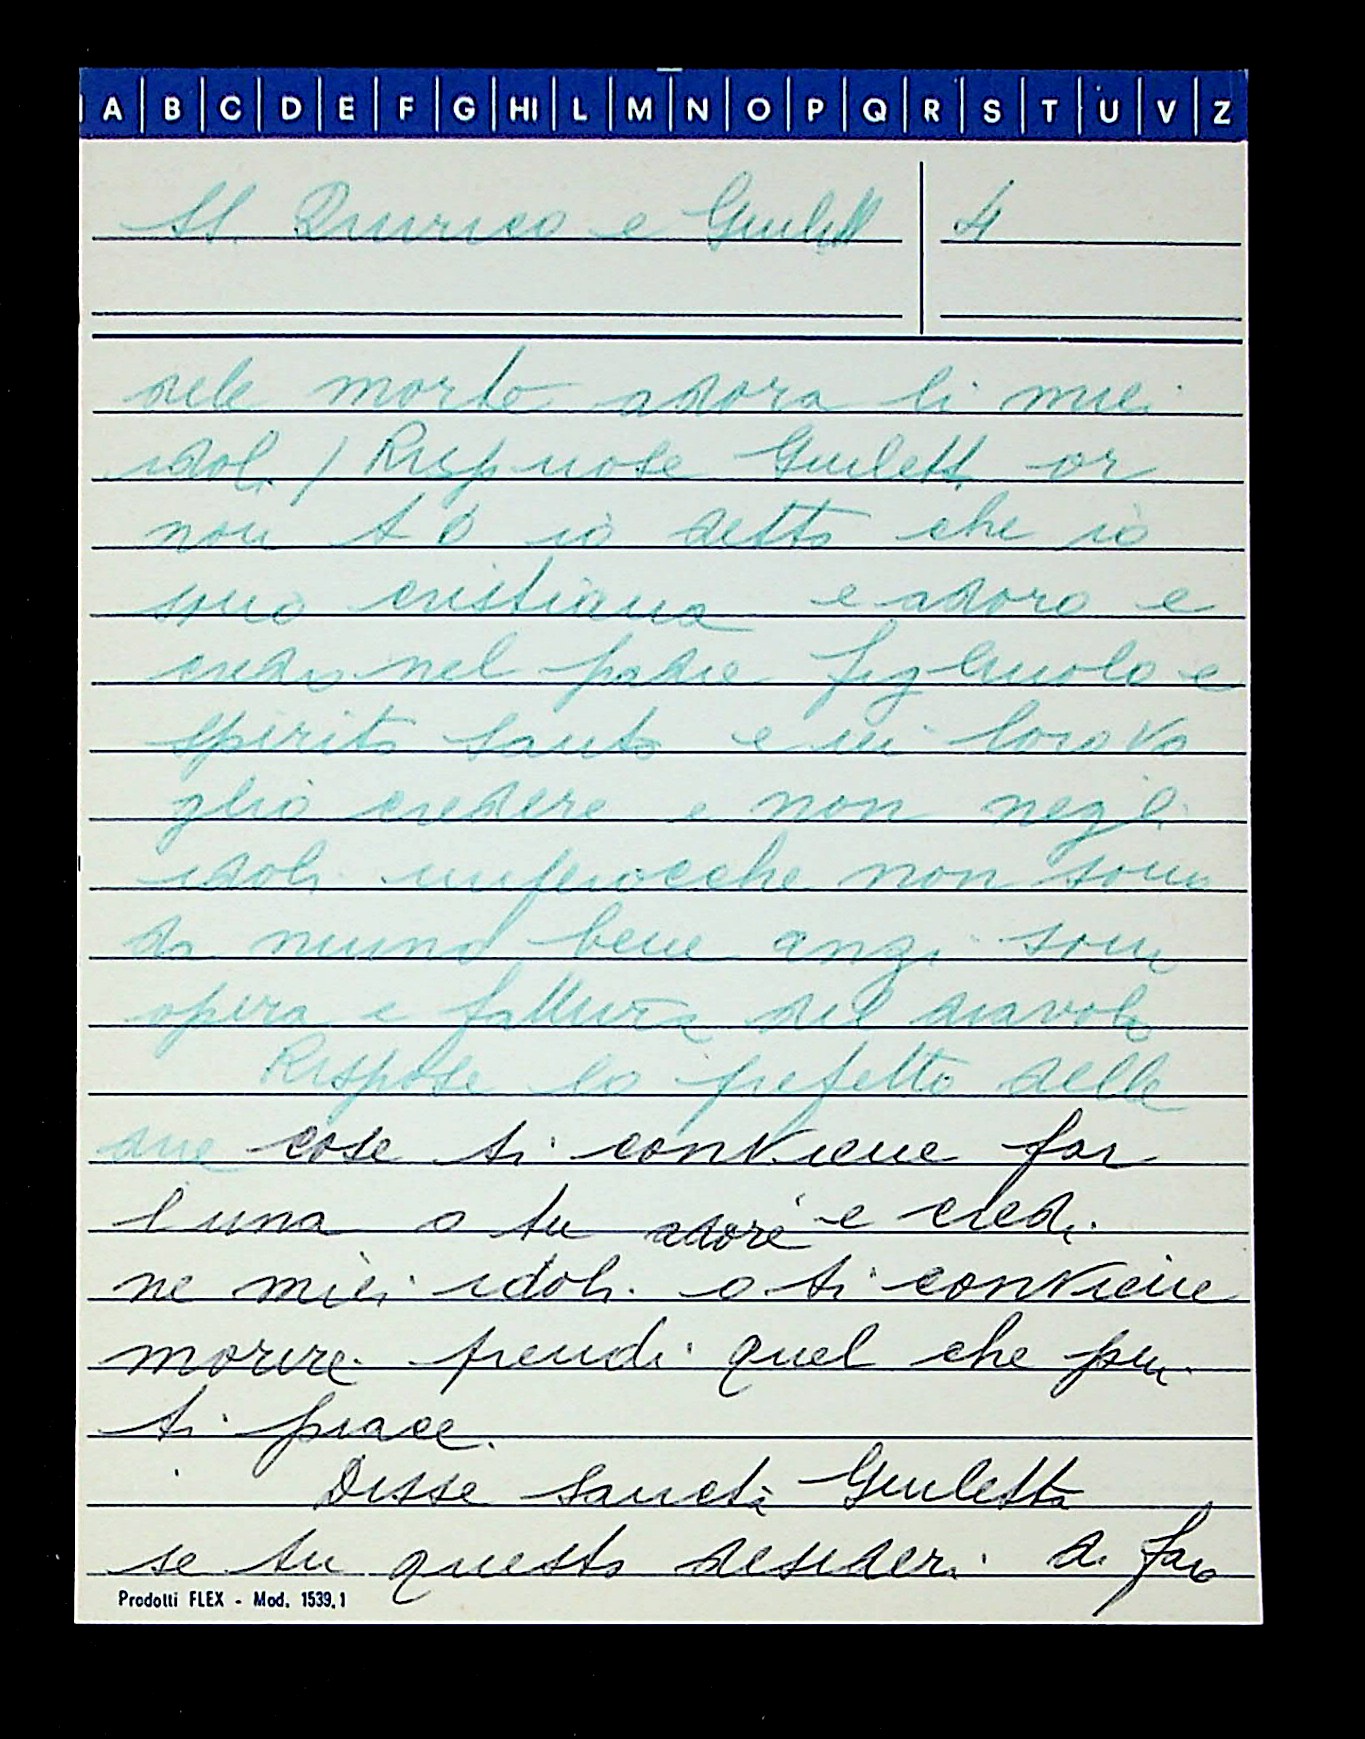 A B C D E F G HI L M N O P Q R S T U V Z
SS. Quirico e Giulett 4
dele morte adora li miei
idoli / Rispuose Giulett or
non t'ò io detto che io
sono cristiana e adoro e
credo nel padre figliuolo e
spirito santo e in loro vo
glio credere e non negli
idoli imperocche non sono
di niuno bene anzi sono
opera e fattura del diavolo
Rispose lo prefetto delle
due cose ti conviene far
l'una o tu adori e credi
ne miei idoli o ti conviene
morire prendi quel che piu
ti piace.
Disse sancta Giuletta
se tu questo desideri di far
Prodotti FLEX - Mod. 1539.1